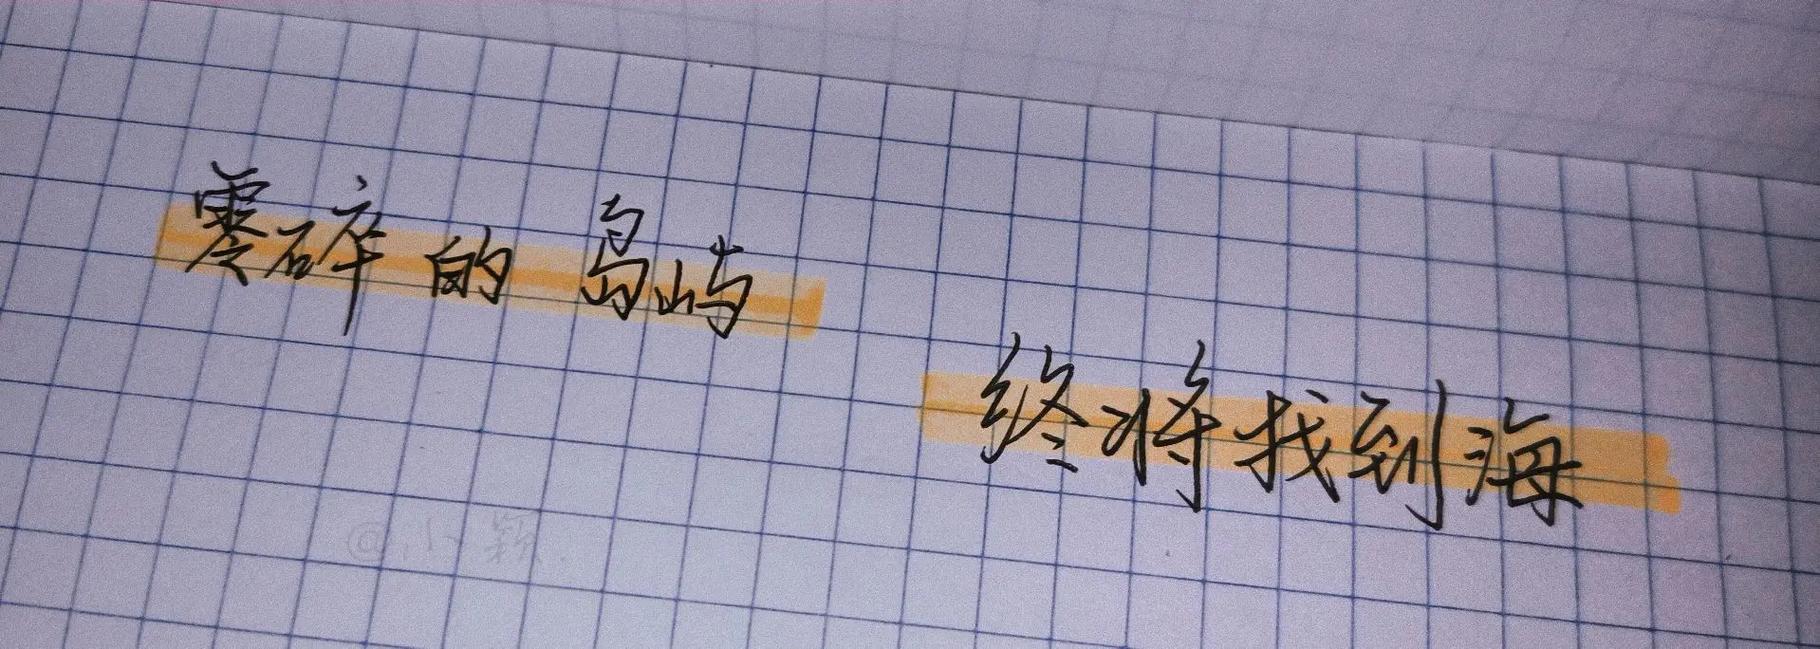 零碎的岛屿
终将找到海
@小颖.